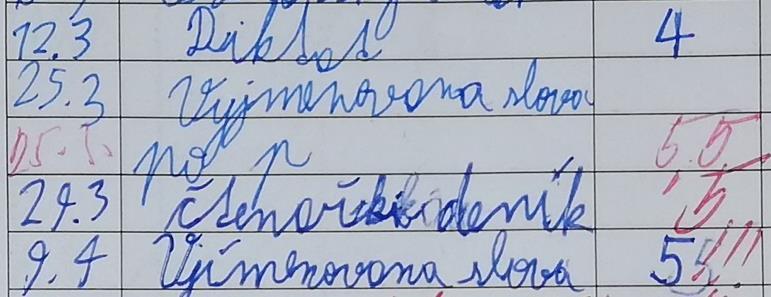 12.3 Diktát 4
25.3 Vyjmenovaná slova
po p 5 5
29.3 čtenářský deník 5
9.4 Vyjmenovaná slova 5 5!!!